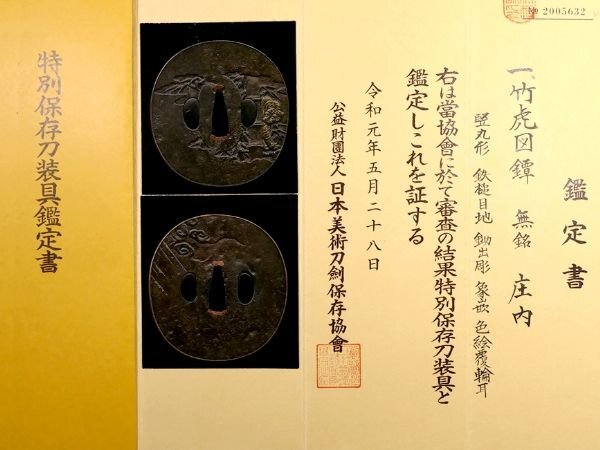 № 2005632
鑑定書
一、竹虎図鐔 無銘 庄内
竪丸形 鉄槌目地 鋤出彫 象嵌 色絵覆輪耳
右は當協會に於て審査の結果特別保存刀装具と
鑑定しこれを証する
令和元年五月二十八日
公益財團法人 日本美術刀劍保存協會
特別保存刀装具鑑定書